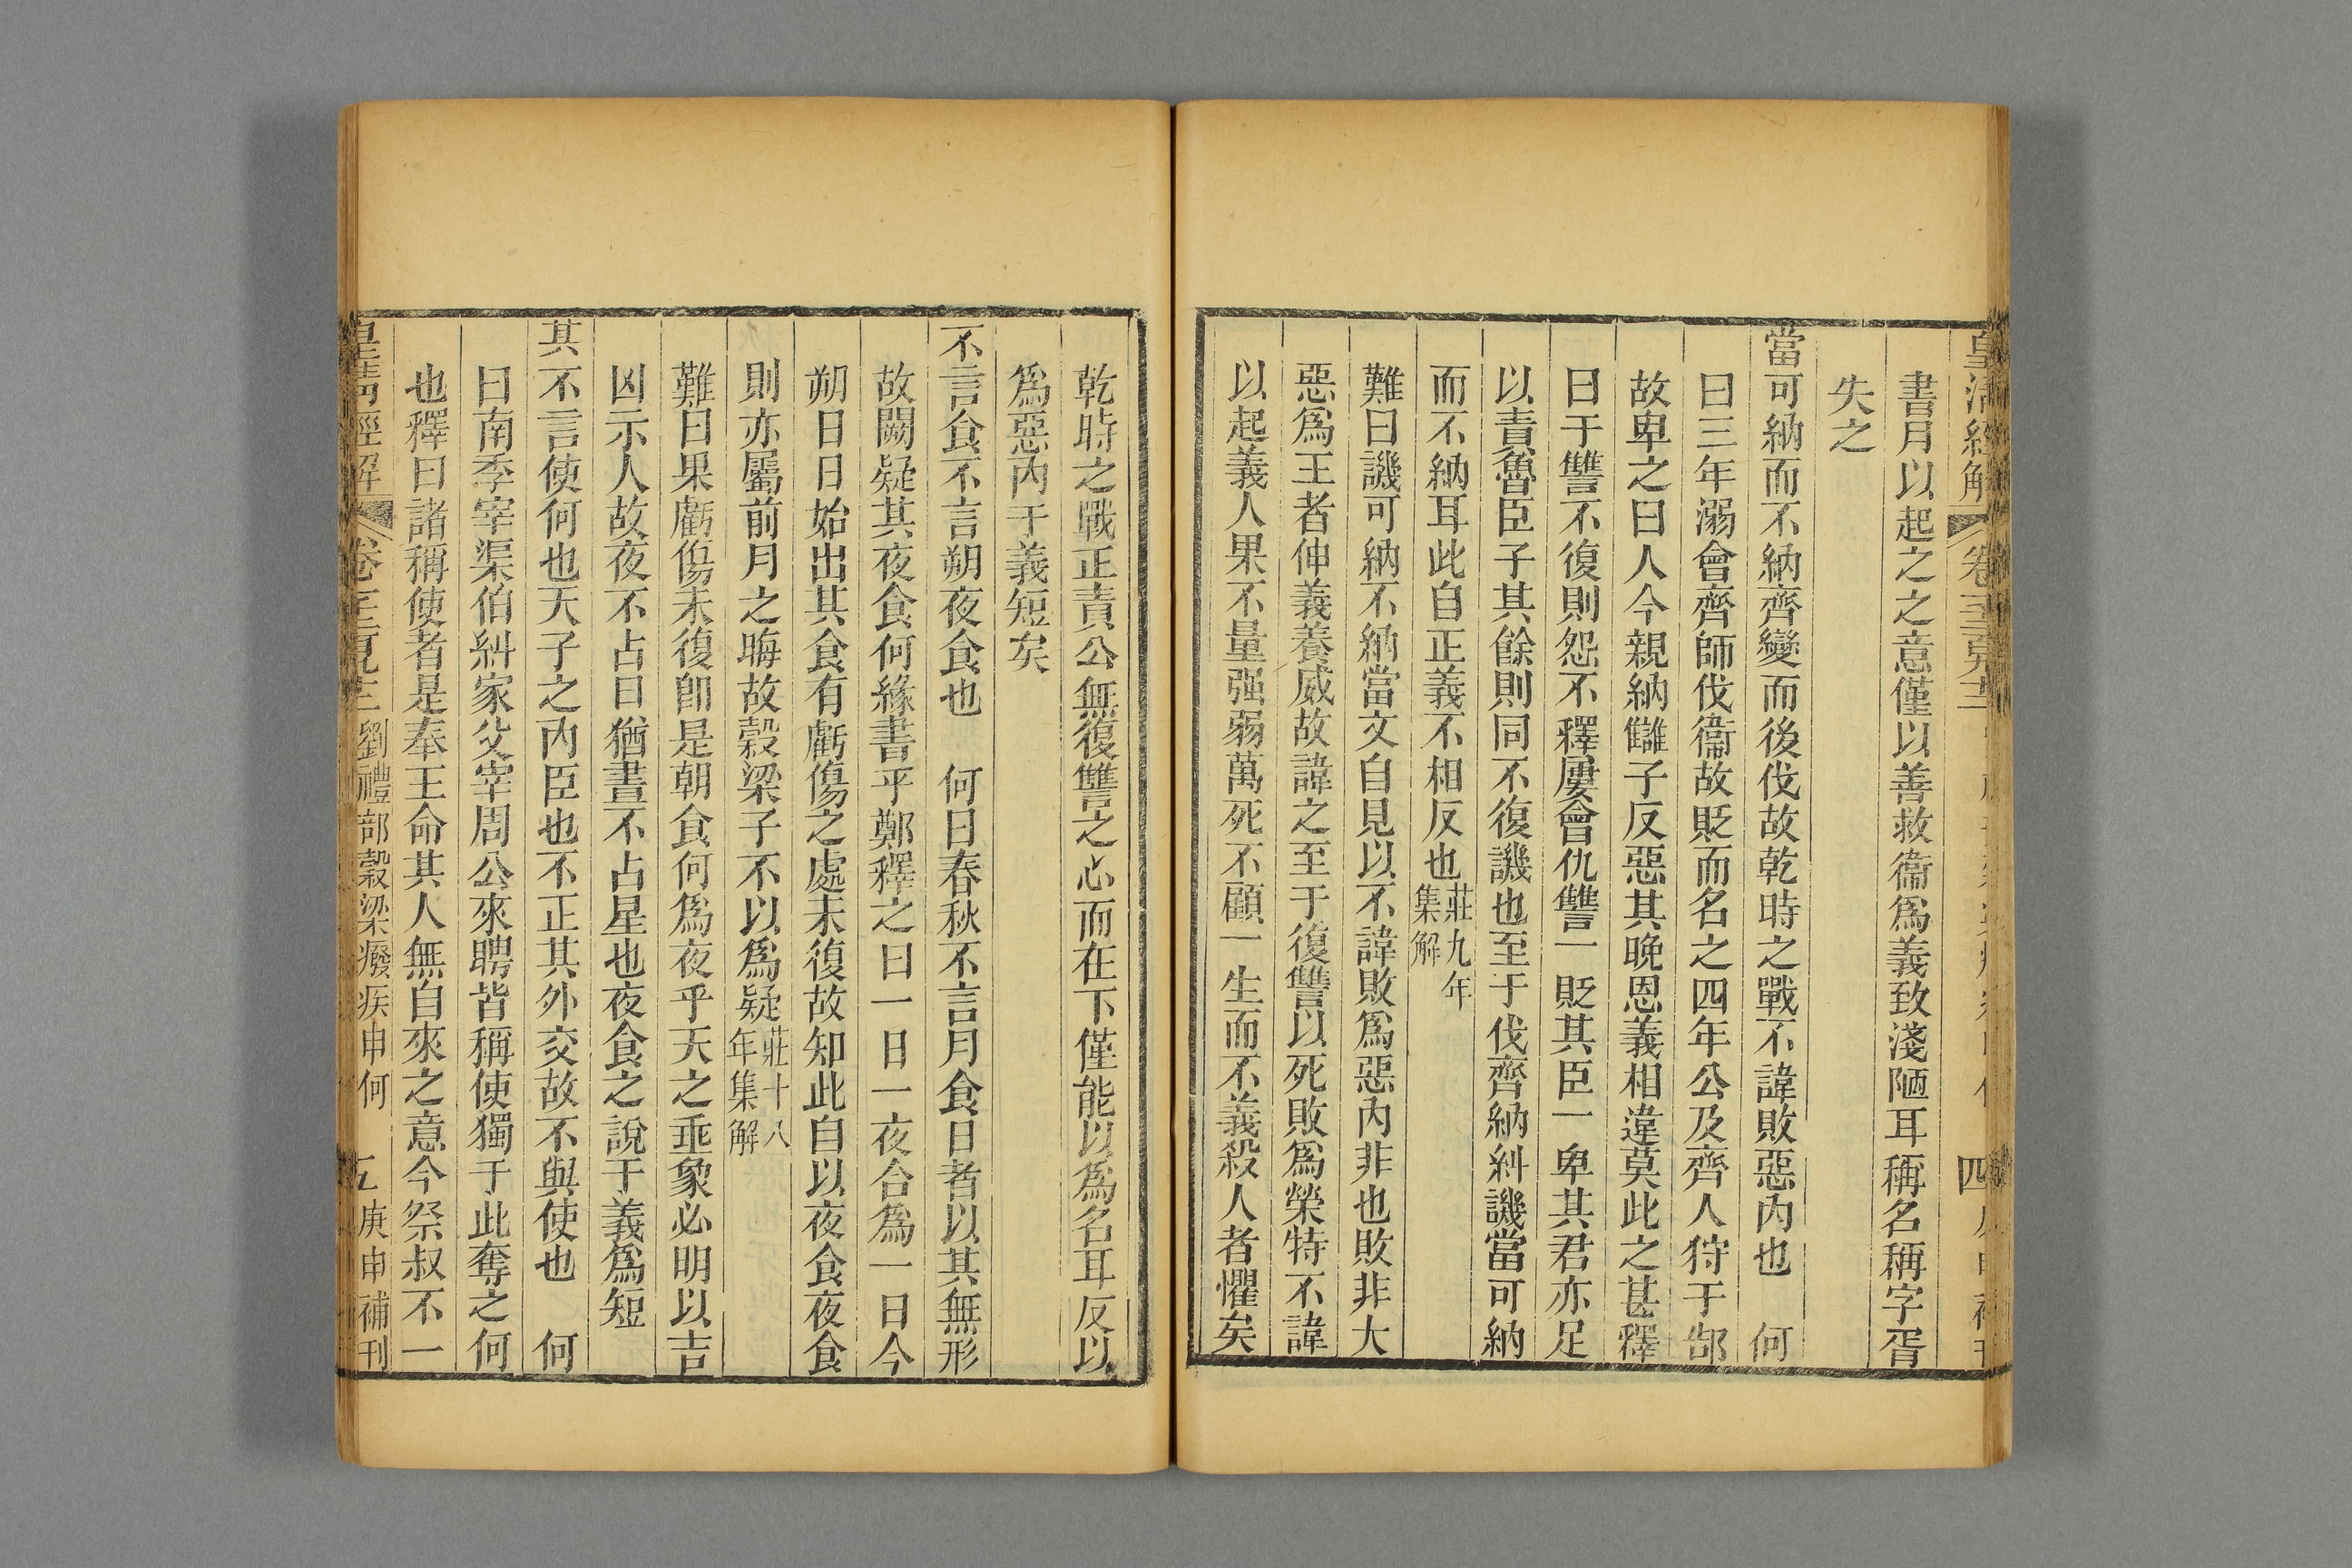 皇清經解 卷 四
書月以起之之意僅以善救衞爲義致淺陋耳稱名稱字胥
失之
當可納而不納齊變而後伐故乾時之戰不諱敗惡內也 何
曰三年溺會齊師伐衞故貶而名之四年公及齊人狩于郜
故卑之曰人今親納讎子反惡其晚恩義相違莫此之甚釋
曰于讐不復則怨不釋屢會仇讐一貶其臣一卑其君亦足
以責魯臣子其餘則同不復譏也至于伐齊納糾譏當可納
而不納耳此自正義不相反也莊九年集解
難曰譏可納不納當文自見以不諱敗爲惡內非也敗非大
惡爲王者伸義養威故諱之至于復讐以死敗爲榮特不諱
以起義人果不量强弱萬死不顧一生而不義殺人者懼矣
乾時之戰正責公無復讐之心而在下僅能以爲名耳反以
爲惡內于義短矣
不言食不言朔夜食也 何曰春秋不言月食日者以其無形
故闕疑其夜食何緣書乎鄭釋之曰一日一夜合爲一日今
朔日日始出其食有虧傷之處未復故知此自以夜食夜食
則亦屬前月之晦故穀梁子不以爲疑莊十八年集解
難曰果虧傷未復卽是朝食何爲夜乎天之垂象必明以吉
凶示人故夜不占日猶晝不占星也夜食之說于義爲短
其不言使何也天子之內臣也不正其外交故不與使也 何
曰南季宰渠伯糾家父宰周公來聘皆稱使獨于此奪之何
也釋曰諸稱使者是奉王命其人無自來之意今祭叔不一
皇淸經解 卷 劉禮部穀梁癈疾申何 五 庚申補刊